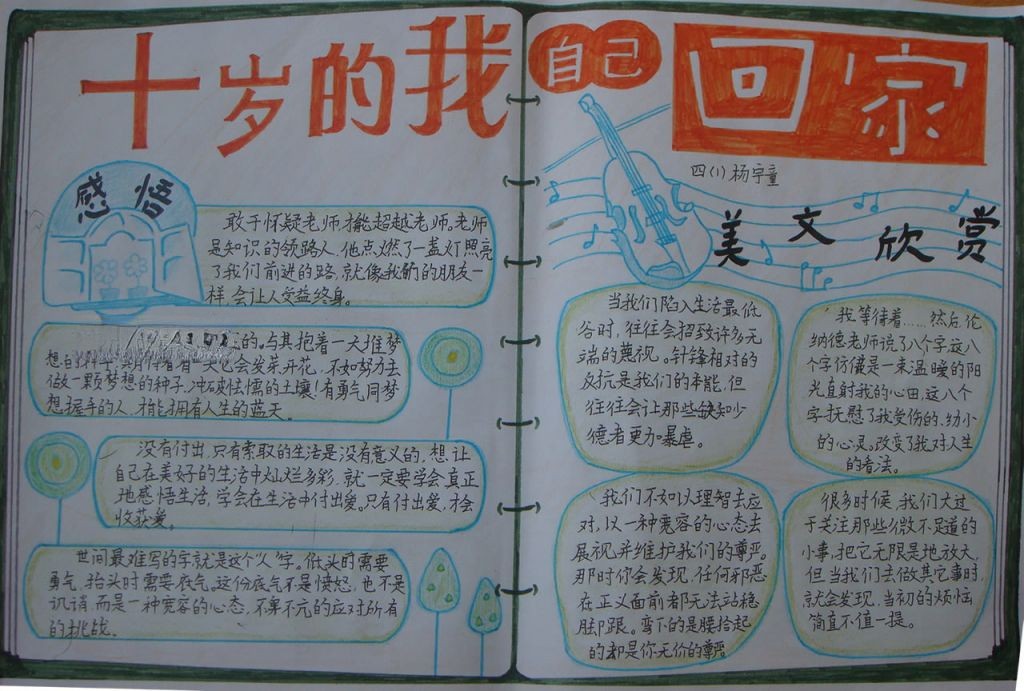 十岁的我
感悟
敢于怀疑老师才能超越老师。老师
是知识的领路人,他点燃了一盏灯照亮
了我们前进的路,就像我们的朋友一
样,会让人受益终身。
的。与其抱着一天推梦
想的种子,期待着有一天它会发芽开花,不如努力去
做一颗梦想的种子,冲破怯懦的土壤!有勇气同梦
想握手的人,才能拥有人生的蓝天。
没有付出,只有索取的生活是没有意义的,想让
自己在美好的生活中灿烂多彩,就一定要学会真正
地感悟生活,学会在生活中付出爱。只有付出爱,才会
收获爱。
世间最难写的字,就是这个“人”字。低头时需要
勇气,抬头时需要底气。这份底气不是愤怒,也不是
讥诮,而是一种宽容的心态,不卑不亢的应对所有
的挑战。
自己
回家
四(1)杨宇童
美文欣赏
当我们陷入生活最低
谷时,往往会招致许多无
端的蔑视。针锋相对的
反抗是我们的本能,但
往往会让那些缺知少
德者更加暴虐。
我等待着……然后,伦
纳德老师说了八个字,这八
个字仿佛是一束温暖的阳
光直射我的心田,这八个
字抚慰了我受伤的、幼小
的心灵。改变了我对人生
的看法。
我们不如以理智去应
对,以一种宽容的心态去
展视,并维护我们的尊严。
那时你会发现,任何邪恶
在正义面前都无法站稳
脚跟。弯下的是腰,拾起
的却是你无价的尊严
很多时候,我们太过
于关注那些微不足道的
小事,把它无限是地放大,
但当我们去做其它事时,
就会发现,当初的烦恼
简直不值一提。